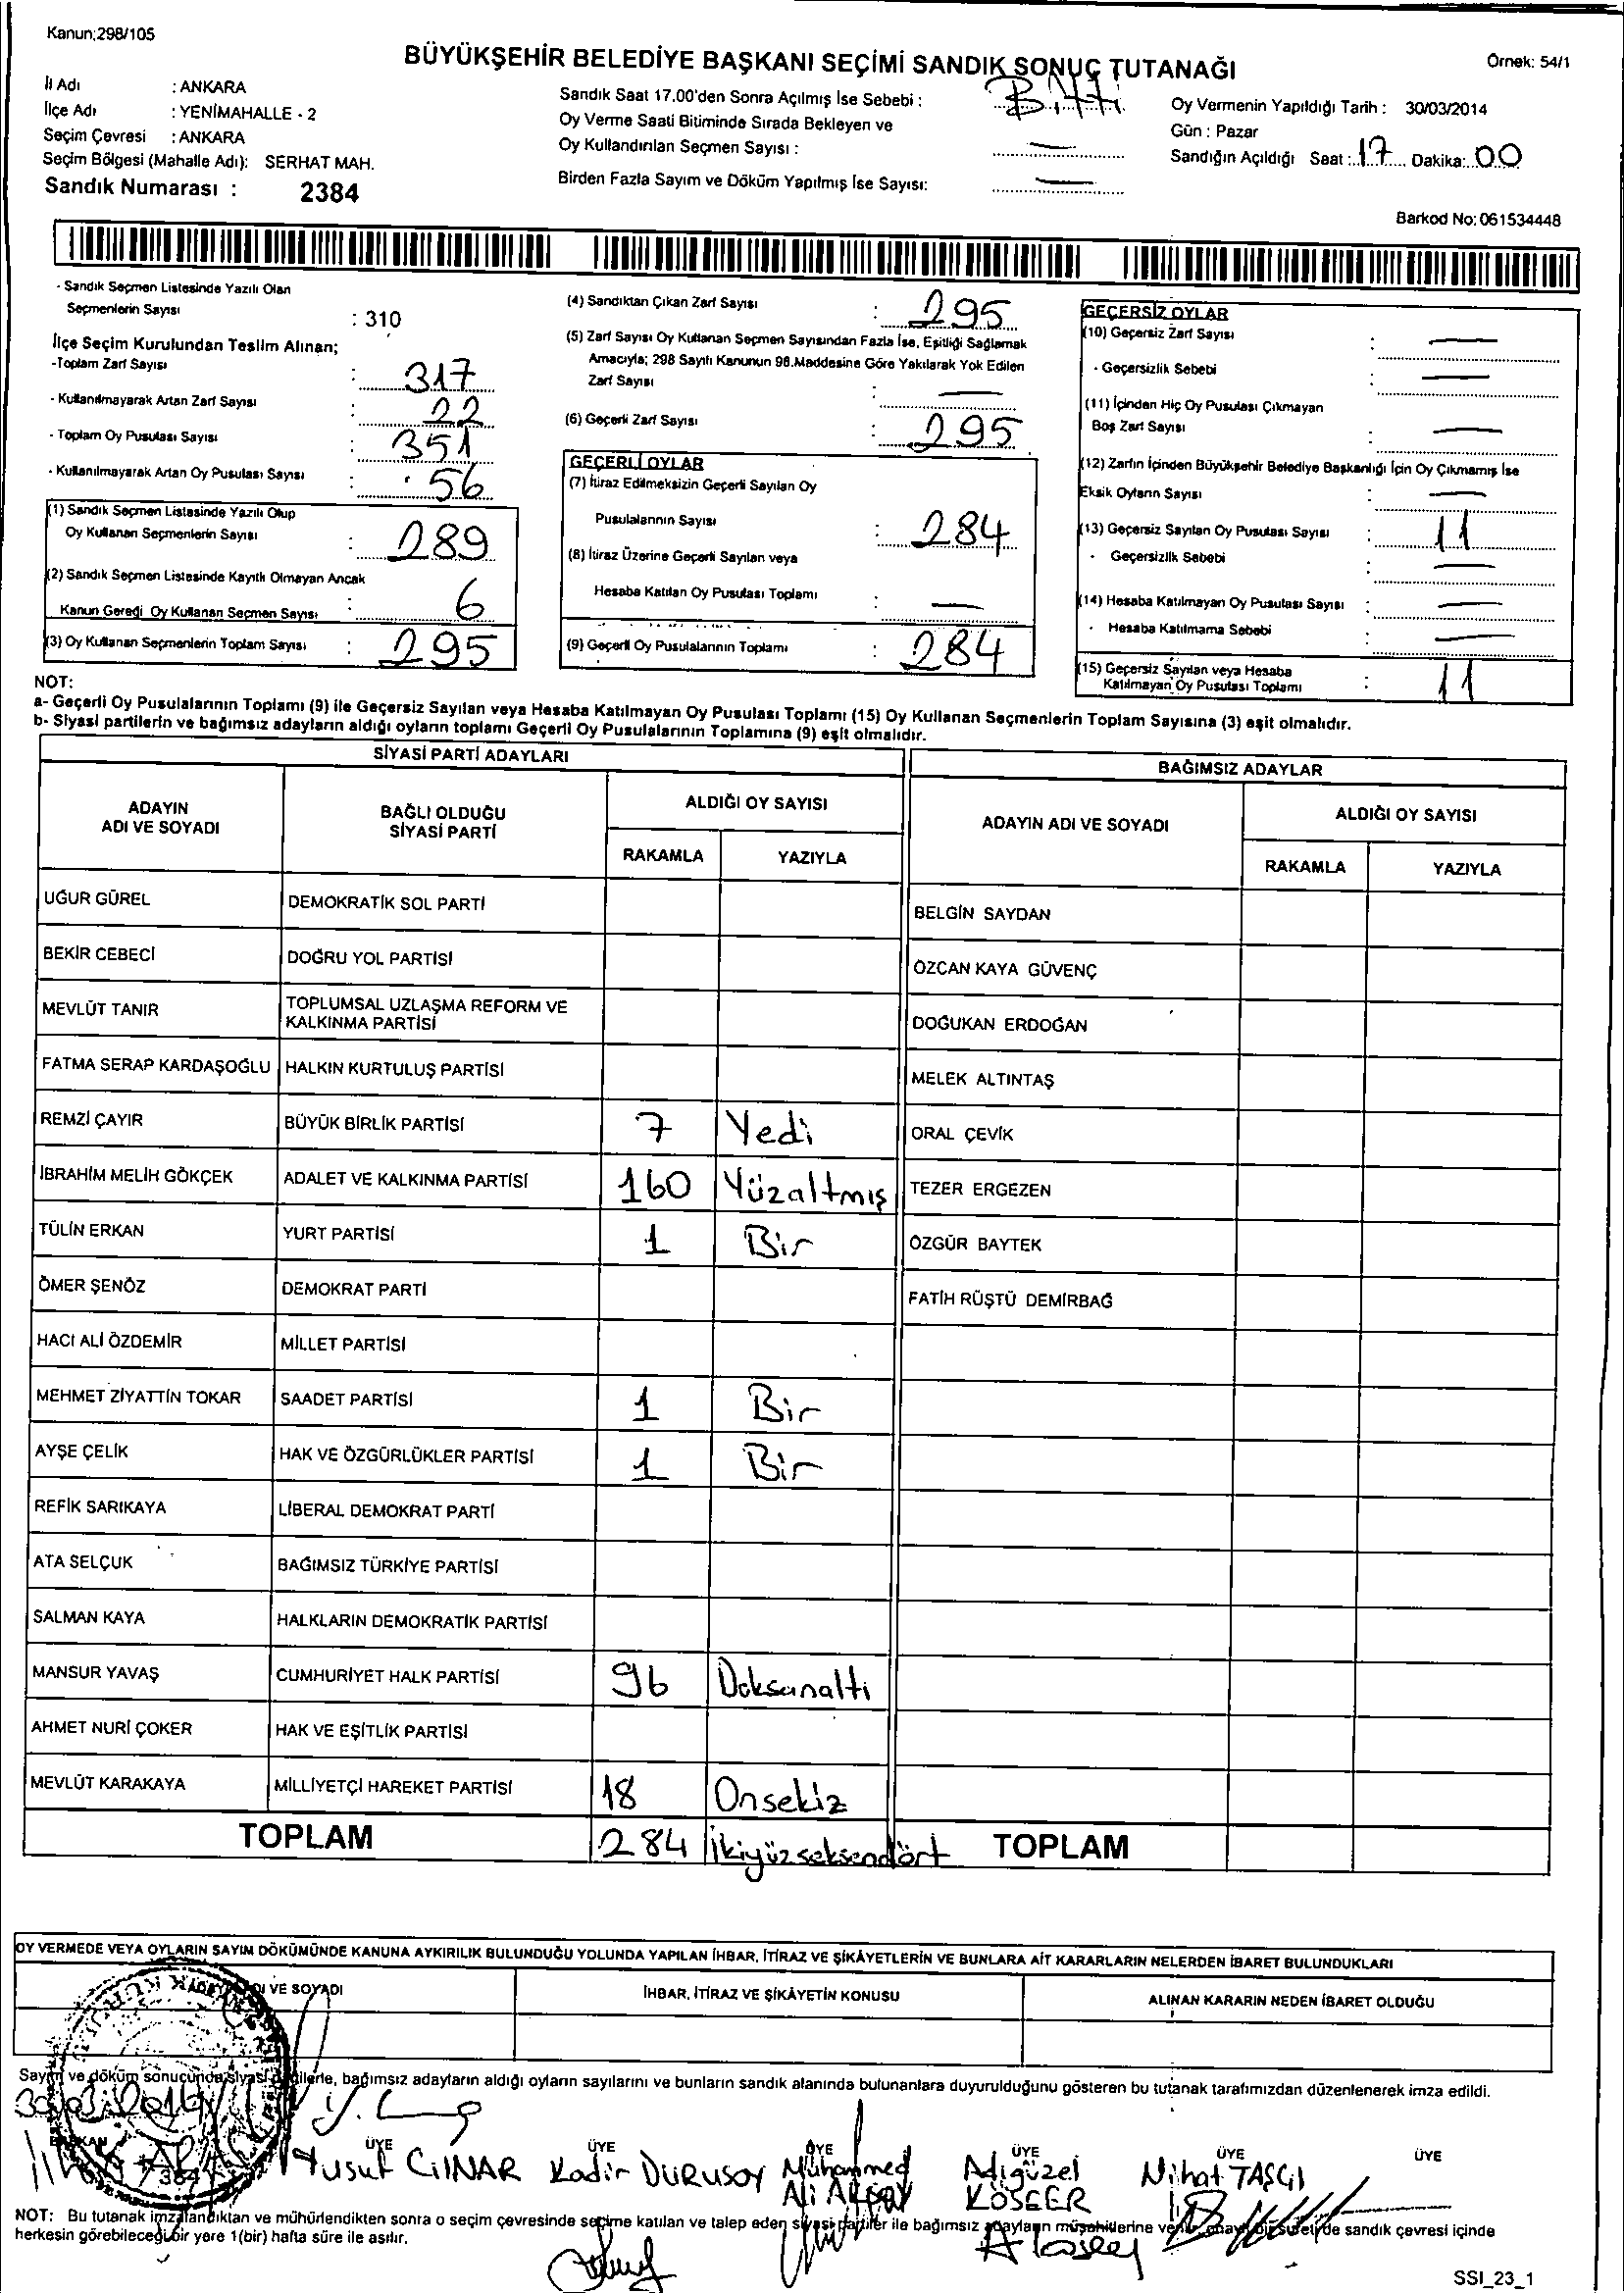 Kanun;298/105
BÜYÜKŞEHİR BELEDİYE BAŞKANI SEÇİMİ SANDIK SONUÇ TUTANAĞI
Örnek: 54/1
İl Adı : ANKARA
İlçe Adı : YENİMAHALLE - 2
Seçim Çevresi : ANKARA
Seçim Bölgesi (Mahalle Adı): SERHAT MAH.
Sandık Numarası : 2384
Sandık Saat 17.00'den Sonra Açılmış İse Sebebi : Bitti
Oy Verme Saati Bitiminde Sırada Bekleyen ve
Oy Kullandırılan Seçmen Sayısı : —
Birden Fazla Sayım ve Döküm Yapılmış İse Sayısı: —
Oy Vermenin Yapıldığı Tarih : 30/03/2014
Gün : Pazar
Sandığın Açıldığı Saat : 17 Dakika: 00
Barkod No: 061534448
- Sandık Seçmen Listesinde Yazılı Olan
Seçmenlerin Sayısı : 310
İlçe Seçim Kurulundan Teslim Alınan;
-Toplam Zarf Sayısı : 317
- Kullanılmayarak Artan Zarf Sayısı : 22
- Toplam Oy Pusulası Sayısı : 351
- Kullanılmayarak Artan Oy Pusulası Sayısı : 56
(1) Sandık Seçmen Listesinde Yazılı Olup
Oy Kullanan Seçmenlerin Sayısı : 289
(2) Sandık Seçmen Listesinde Kayıtlı Olmayan Ancak
Kanun Gereği Oy Kullanan Seçmen Sayısı : 6
(3) Oy Kullanan Seçmenlerin Toplam Sayısı : 295
(4) Sandıktan Çıkan Zarf Sayısı : 295
(5) Zarf Sayısı Oy Kullanan Seçmen Sayısından Fazla İse, Eşitliği Sağlamak
Amacıyla; 298 Sayılı Kanunun 98.Maddesine Göre Yakılarak Yok Edilen
Zarf Sayısı : —
(6) Geçerli Zarf Sayısı : 295
GEÇERLİ OYLAR
(7) İtiraz Edilmeksizin Geçerli Sayılan Oy
Pusulalarının Sayısı : 284
(8) İtiraz Üzerine Geçerli Sayılan veya
Hesaba Katılan Oy Pusulası Toplamı : —
(9) Geçerli Oy Pusulalarının Toplamı : 284
GEÇERSİZ OYLAR
(10) Geçersiz Zarf Sayısı : —
- Geçersizlik Sebebi : —
(11) İçinden Hiç Oy Pusulası Çıkmayan
Boş Zarf Sayısı : —
(12) Zarfın İçinden Büyükşehir Belediye Başkanlığı İçin Oy Çıkmamış İse
Eksik Oyların Sayısı : —
(13) Geçersiz Sayılan Oy Pusulası Sayısı : 11
- Geçersizlik Sebebi : —
(14) Hesaba Katılmayan Oy Pusulası Sayısı : —
- Hesaba Katılmama Sebebi : —
(15) Geçersiz Sayılan veya Hesaba
Katılmayan Oy Pusulası Toplamı : 11
NOT:
a- Geçerli Oy Pusulalarının Toplamı (9) ile Geçersiz Sayılan veya Hesaba Katılmayan Oy Pusulası Toplamı (15) Oy Kullanan Seçmenlerin Toplam Sayısına (3) eşit olmalıdır.
b- Siyasi partilerin ve bağımsız adayların aldığı oyların toplamı Geçerli Oy Pusulalarının Toplamına (9) eşit olmalıdır.
SİYASİ PARTİ ADAYLARI
ADAYIN ADI VE SOYADI BAĞLI OLDUĞU SİYASİ PARTİ ALDIĞI OY SAYISI
RAKAMLA YAZIYLA
UĞUR GÜREL DEMOKRATİK SOL PARTİ
BEKİR CEBECİ DOĞRU YOL PARTİSİ
MEVLÜT TANIR TOPLUMSAL UZLAŞMA REFORM VE
KALKINMA PARTİSİ
FATMA SERAP KARDAŞOĞLU HALKIN KURTULUŞ PARTİSİ
REMZİ ÇAYIR BÜYÜK BİRLİK PARTİSİ 7 Yedi
İBRAHİM MELİH GÖKÇEK ADALET VE KALKINMA PARTİSİ 160 Yüzaltmış
TÜLİN ERKAN YURT PARTİSİ 1 Bir
ÖMER ŞENÖZ DEMOKRAT PARTİ
HACI ALİ ÖZDEMİR MİLLET PARTİSİ
MEHMET ZİYATTİN TOKAR SAADET PARTİSİ 1 Bir
AYŞE ÇELİK HAK VE ÖZGÜRLÜKLER PARTİSİ 1 Bir
REFİK SARIKAYA LİBERAL DEMOKRAT PARTİ
ATA SELÇUK BAĞIMSIZ TÜRKİYE PARTİSİ
SALMAN KAYA HALKLARIN DEMOKRATİK PARTİSİ
MANSUR YAVAŞ CUMHURİYET HALK PARTİSİ 96 Doksanaltı
AHMET NURİ ÇOKER HAK VE EŞİTLİK PARTİSİ
MEVLÜT KARAKAYA MİLLİYETÇİ HAREKET PARTİSİ 18 Onsekiz
TOPLAM 284 İkiyüzseksendört
BAĞIMSIZ ADAYLAR
ADAYIN ADI VE SOYADI ALDIĞI OY SAYISI
RAKAMLA YAZIYLA
BELGİN SAYDAN
ÖZCAN KAYA GÜVENÇ
DOĞUKAN ERDOĞAN
MELEK ALTINTAŞ
ORAL ÇEVİK
TEZER ERGEZEN
ÖZGÜR BAYTEK
FATİH RÜŞTÜ DEMİRBAĞ
TOPLAM
OY VERMEDE VEYA OYLARIN SAYIM DÖKÜMÜNDE KANUNA AYKIRILIK BULUNDUĞU YOLUNDA YAPILAN İHBAR, İTİRAZ VE ŞİKÂYETLERİN VE BUNLARA AİT KARARLARIN NELERDEN İBARET BULUNDUKLARI
VE SOYADI İHBAR, İTİRAZ VE ŞİKÂYETİN KONUSU ALINAN KARARIN NEDEN İBARET OLDUĞU
Sayım ve döküm sonucunda siyasi partilerle, bağımsız adayların aldığı oyların sayılarını ve bunların sandık alanında bulunanlara duyurulduğunu gösteren bu tutanak tarafımızdan düzenlenerek imza edildi.
BAŞKAN ÜYE ÜYE ÜYE ÜYE ÜYE ÜYE
Yusuf ÇINAR Kadir DURUSOY Muhammed Adıgüzel Nihat TAŞÇI
Ali KÖSEER
NOT: Bu tutanak imzalandıktan ve mühürlendikten sonra o seçim çevresinde seçime katılan ve talep eden siyasi partiler ile bağımsız adayların müşahitlerine verilir, onaylı bir sureti de sandık çevresi içinde
herkesin görebileceği bir yere 1(bir) hafta süre ile asılır.
SSI_23_1